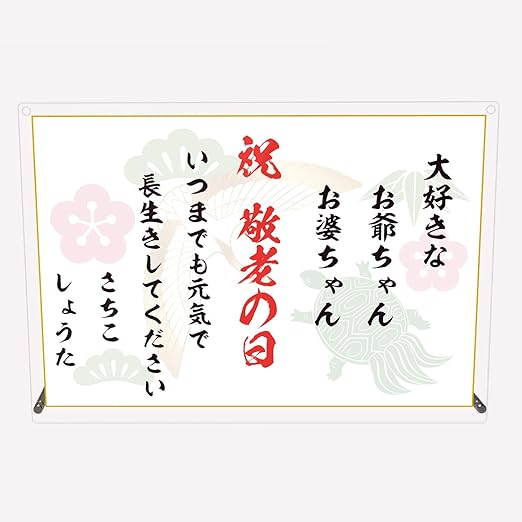 大好きな
お爺ちゃん
お婆ちゃん
祝 敬老の日
いつまでも元気で
長生きしてください
さちこ
しょうた